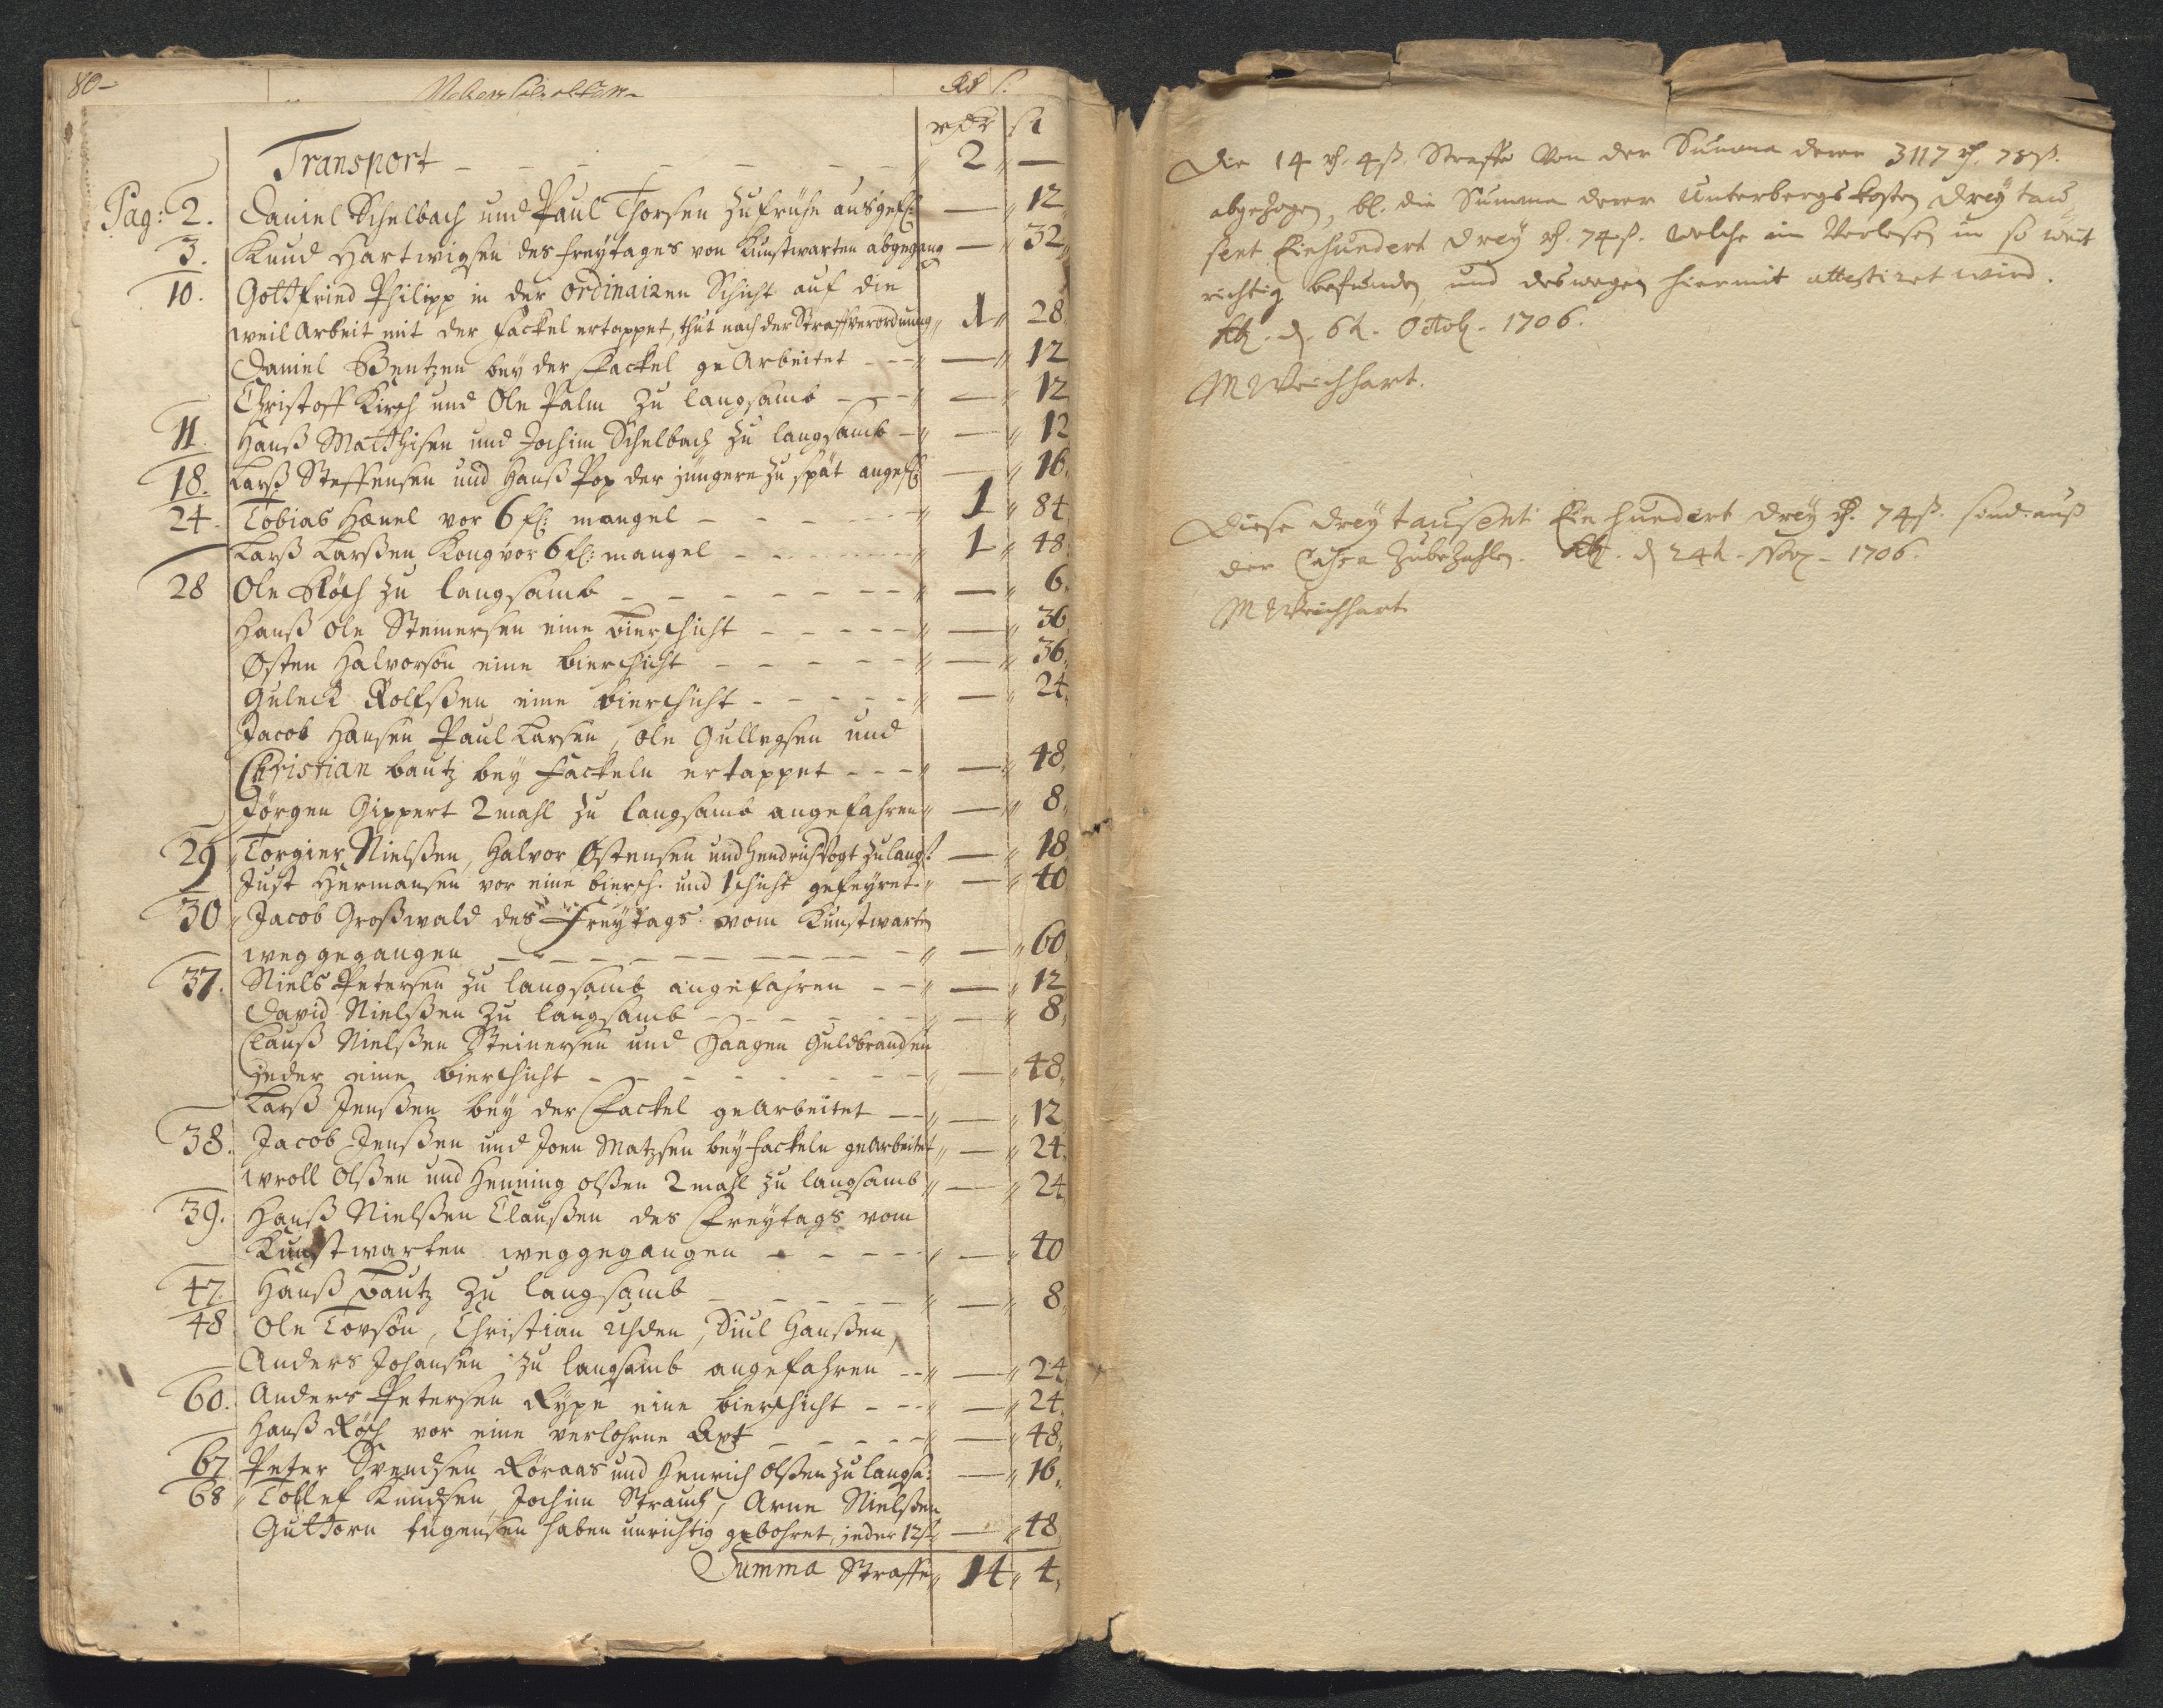 80-
Rd s.
rdr sl
Transport - - - - - - - 2 —
Pag: 2. Daniel Schelbach und Paul Thorsen zu frühe ausgef: — 12
3. Knud Hartwigsen des freytages von Kunstwarten abgegang — 32
10. Gottfried Philipp in der ordinairen Schicht auf die
weil Arbeit mit der Fackel ertappet, thut nach der Straffverordnung 1 28
Daniel Bentzen bey der Fackel gearbeitet - - - — 12
Christoff Kirch und Ole Palm zu langsamb - - - — 12
11. Hanß Matthisen und Jochim Schelbach zu langsamb - — 12
18. Larß Steffensen und Hanß Pop der jüngere zu spät angef: — 16
24. Tobias Hænel vor 6 fl: mangel - - - - - 1 84
Larß Larßen Kong vor 6 fl: mangel - - - - - 1 48
28 Ole Röch zu langsamb - - - - - - - — 6
Hanß Ole Steinersen eine bierschicht - - - - - — 36
Østen Halvorsøn eine bierschicht - - - - - — 36
Guleck Rolfßen eine bierschicht - - - - - — 24
Jacob Hansen Paul Larsen, Ole Gullegsen und
Christian bautz bey Fackeln ertappet - - - — 48
Jørgen Gippert 2 mahl zu langsamb angefahren — 8
29 Torgier Nielßen, Halvor Østensen und Hendrich Vogt zu langs: — 18
Just Hermansen vor eine biersch. und 1 schicht gefeyret — 40
30 Jacob Großwald des Freytags vom Kunstwarten
weggegangen - - - - - - - - — 60
37. Niels Petersen zu langsamb angefahren - - — 12
David Nielßen zu langsamb - - - - - - — 8
Clauß Nielßen Steinersen und Haagen Guldbrandsen
jeder eine bierschicht - - - - - - — 48
Larß Jenßen bey der Fackel gearbeitet - - — 12
38. Jacob Jenßen und Joen Matzsen bey Fackeln gearbeitet — 24
wroll Olßen und Henning olßen 2 mahl zu langsamb — 24
39. Hanß Nielßen Claußen des Freytags vom
Kunstwarten weggegangen - - - - - — 40
47. Hanß Bautz zu langsamb - - - - - — 8
48 Ole Torsøn, Christian Uhden, Siul Hanßen,
Anders Johansen zu langsamb angefahren - - — 24
60. Anders Petersen Rype eine bierschicht - - - — 24
Hanß Röch vor eine verlohrne Axt - - - - — 48
67 Peter Svendsen Röraas und Henrich olßen zu langsa: — 16
68 Tollef Knudsen, Jochim Strauch, Arne Nielßen
Guttorn haben unrichtig gebohret, jeder 12 ß — 48
Summa Straffe 14 4
Die 14 rh. 4 ß. Straffe Von der Summa derer 3117 rh. 78 ß.
abgezogen, bl. die Summa derer Unterbergskosten Drey tau
sent Einhundert Drey rh. 74 ß. welche im Verlesen in so weit
richtig befunden, und deswegen hiermit attestiret wird.
Kb. d. 6t. Octob. 1706.
M Weichhart.
Diese Drey tausent Ein hundert Drey rh. 74 ß. sind auß
der Cassa zubezahlen. Kb. d 24t. Nov. 1706.
M Weichhart